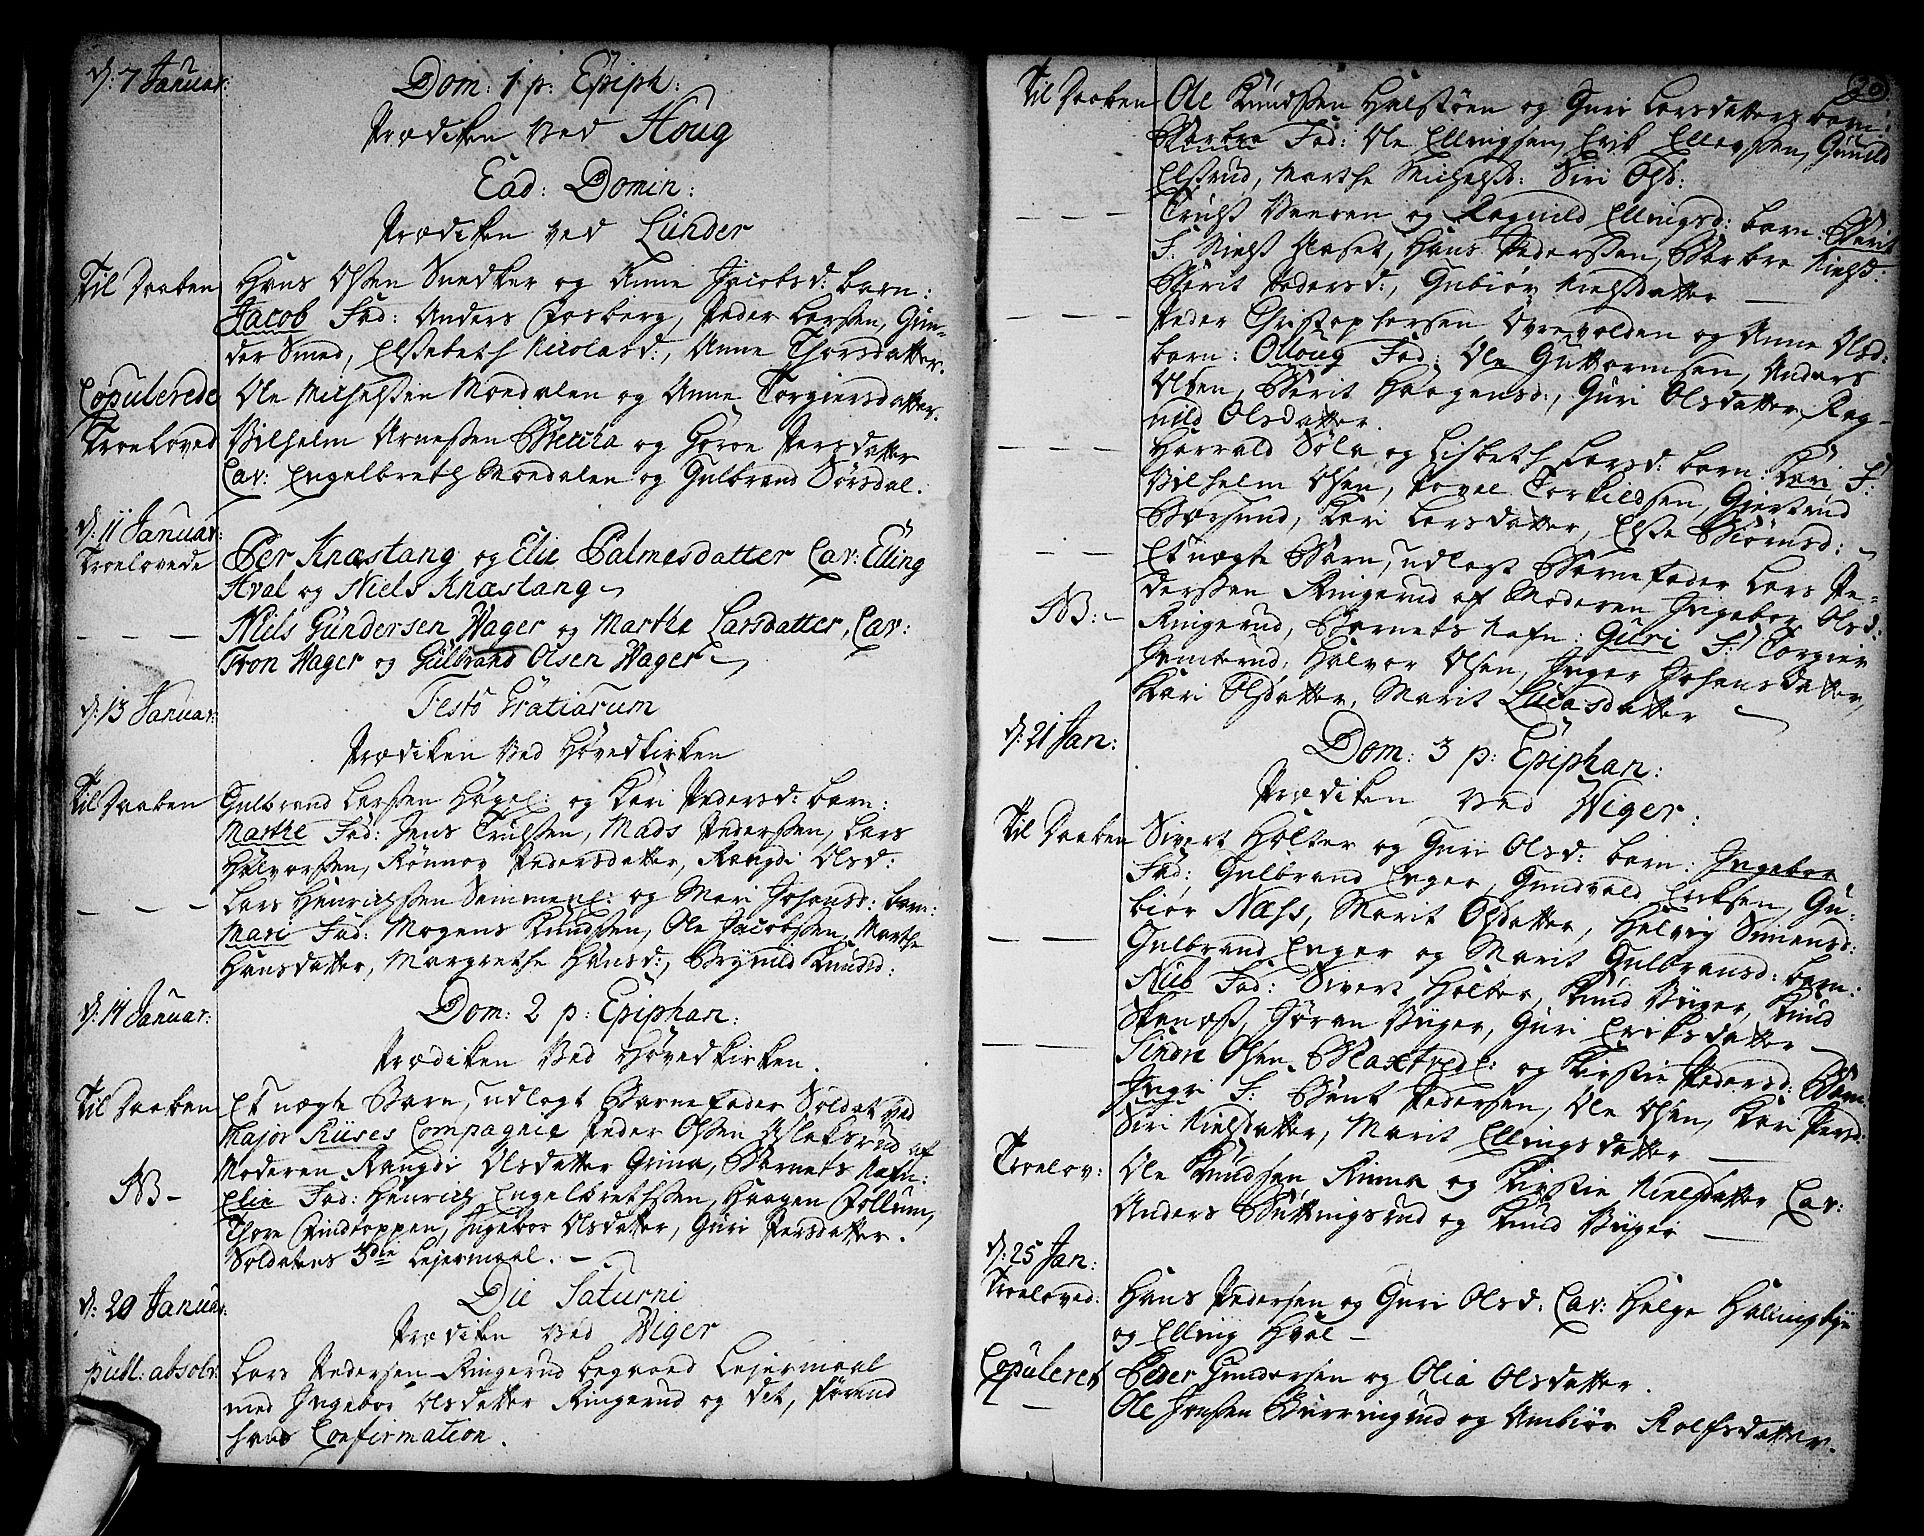 d: 7 Januar:
Dom: 1 p: Epiph:
Prædiken ved Houg
Ead: Domin:
Prædiken ved Lünder
Til Daaben
Hans Olssen Snedker og Anne Jacobsd: barn:
Jacob Fad: Anders Fosberg, Peder Larssen, Gun-
der Smed, Elssebeth Nicolasd:, Anne Thorsdatter.
Copulerede
Ole Michelssen Moedalen og Anne Torgiersdatter.
Troeloved
Vilhelm Arnessen og Goroe Persdatter
Cav: Engelbreth Moedalen og Gulbrand Sörsdal.
d: 11 Januar:
Troelovede
Per Knæstang og Elie Palmesdatter Cav: Elling
Hval og Niels Knæstang
— — —
Niels Gündersen Wager og Marthe Larsdatter, Cav:
Tron Wager og Gülbrand Olsen Wager
d: 13 Januar:
Festo Gratiarum
Prædiken ved Hovedkirken
Til Daaben
Gulbrand Larssen og Kari Pedersd: barn:
Marthe Fad: Jens Trulssen, Mads Pederssen, Lars
Halvorssen, Rönnog Pedersdatter, Rangdi Olsd:
— — —
Lars Henrichssen og Mari Johansd: barn:
Mari Fad: Mogens Knudssen, Ole Jacobssen, Marthe
Hansdatter, Margrethe Hansd:, Brynild Knudsd:
d: 14 Januar:
Dom: 2 p: Epiphan:
Prædiken ved Hovedkirken.
Til Daaben
Et uægte Barn, udlagt Barnefader Soldat ved
Major Riises Compagnie Peder Olssen Aslaksrud af
Moderen Rangdi Olsdatter Grina, Barnets Nafn:
NB —
Elie Fad: Henrich Engelbrethssen, Haagen Follum,
Thore Findtoppen, Ingebor Olsdatter, Guri Persdatter.
Soldatens 3die Leiermaal. —
d: 20 Januar:
Die Saturni
Prædiken ved Wiger
publ: absolv:
Lars Pedersen Ringerud begaaed Leiermaal
med Ingebor Olsdatter Ringerud og det, förend
hans Confirmation.
30.
Til Daaben
Ole Knudssen Halstöen og Guri Larsdatters barn:
Barbra Fad: Ole Ellingsen, Erik Ellevssen, Gunild
Elsrud, Marthe Michelsd: Siri Olsd:
— — —
Truls Veeren og Ragnild Ellingsd: barn: Berit
F: Niels Haset, Hans Pederssen, Barbra Nielsd:
Marit Pedersd:, Gubiör Nielsdatter —
— — —
Peder Christophersen Övrevolden og Anne Olsd:
barn: Olloug Fad: Ole Guttormsen, Anders
Olsen, Berit Haagensd:, Guri Olsdatter, Rag-
nild Olsdatter.
— — —
Harrald Söla og Lisbeth Larsd: barn: Kari F:
Vilhelm Olsen, Povel Torkildsen, Giertrud
Kari Larsdatter, Else Biörnsd:
— — —
Et uægte Barn, udlagt Barnefader Lars Pe-
derssen Ringerud af Moderen Ingebor Olsd:
NB: —
Ringerud, Barnets Nafn: Guri F: Torgier
Halvor Olsen, Inger Johansdatter,
Kari Olsdatter, Marit Lucasdatter
d: 21 Jan:
Dom: 3 p: Epiphan:
Prædiken ved Wiger:
Til Daaben
Sivert Holter og Guri Olsd: barn: Ingebor
Fad: Gulbrand Enger, Gundvald Ericksen, Gu-
biör Næss, Marit Olsdatter, Helvig Simensd:
— — —
Gulbrand Enger og Marit Gulbransd: barn:
Niels Fad: Sivert Holter, Knud Viger, Knud
Jöran Viger, Guri Eriksdatter
— — —
Sindre Olsen og Kirstie Pedersd: Barn
Ingri F: Bent Pedersen, Ole Olsen, Kari Persd:
Siri Nielsdatter, Marit Ellingsdatter —
Troelov:
Ole Knudsen Rinna og Kirstie Nielsdatter Cav:
Anders Büttingsrud og Knud Viger —
d: 25 Jan:
Troeloved:
Hans Pedersen og Guri Olsd: Cav: Helge Hallingbye
og Elling Hval —
Copuleret
Peder Gundersen og Olia Olsdatter.
—
Ole Jonsen og Ambiör Rolfsdatter.